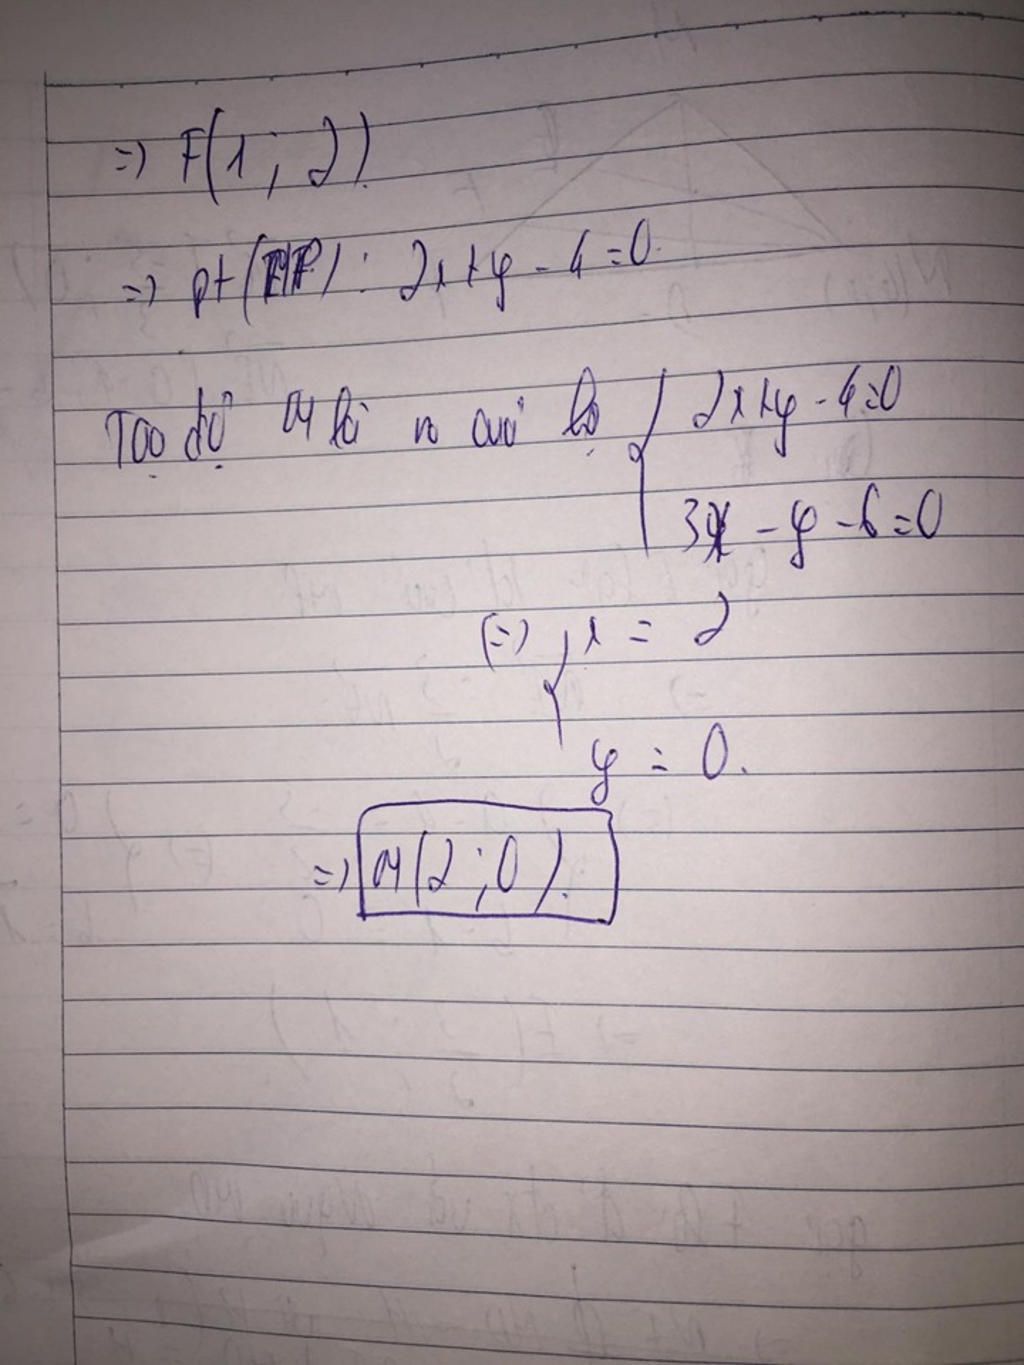 => F(1; 2)
=> pt ( ): 2x+y-4=0.
Toạ độ M là no của hệ { 2x+y-4=0
3x-y-6=0
(=> { x = 2
y = 0.
=> M(2;0).